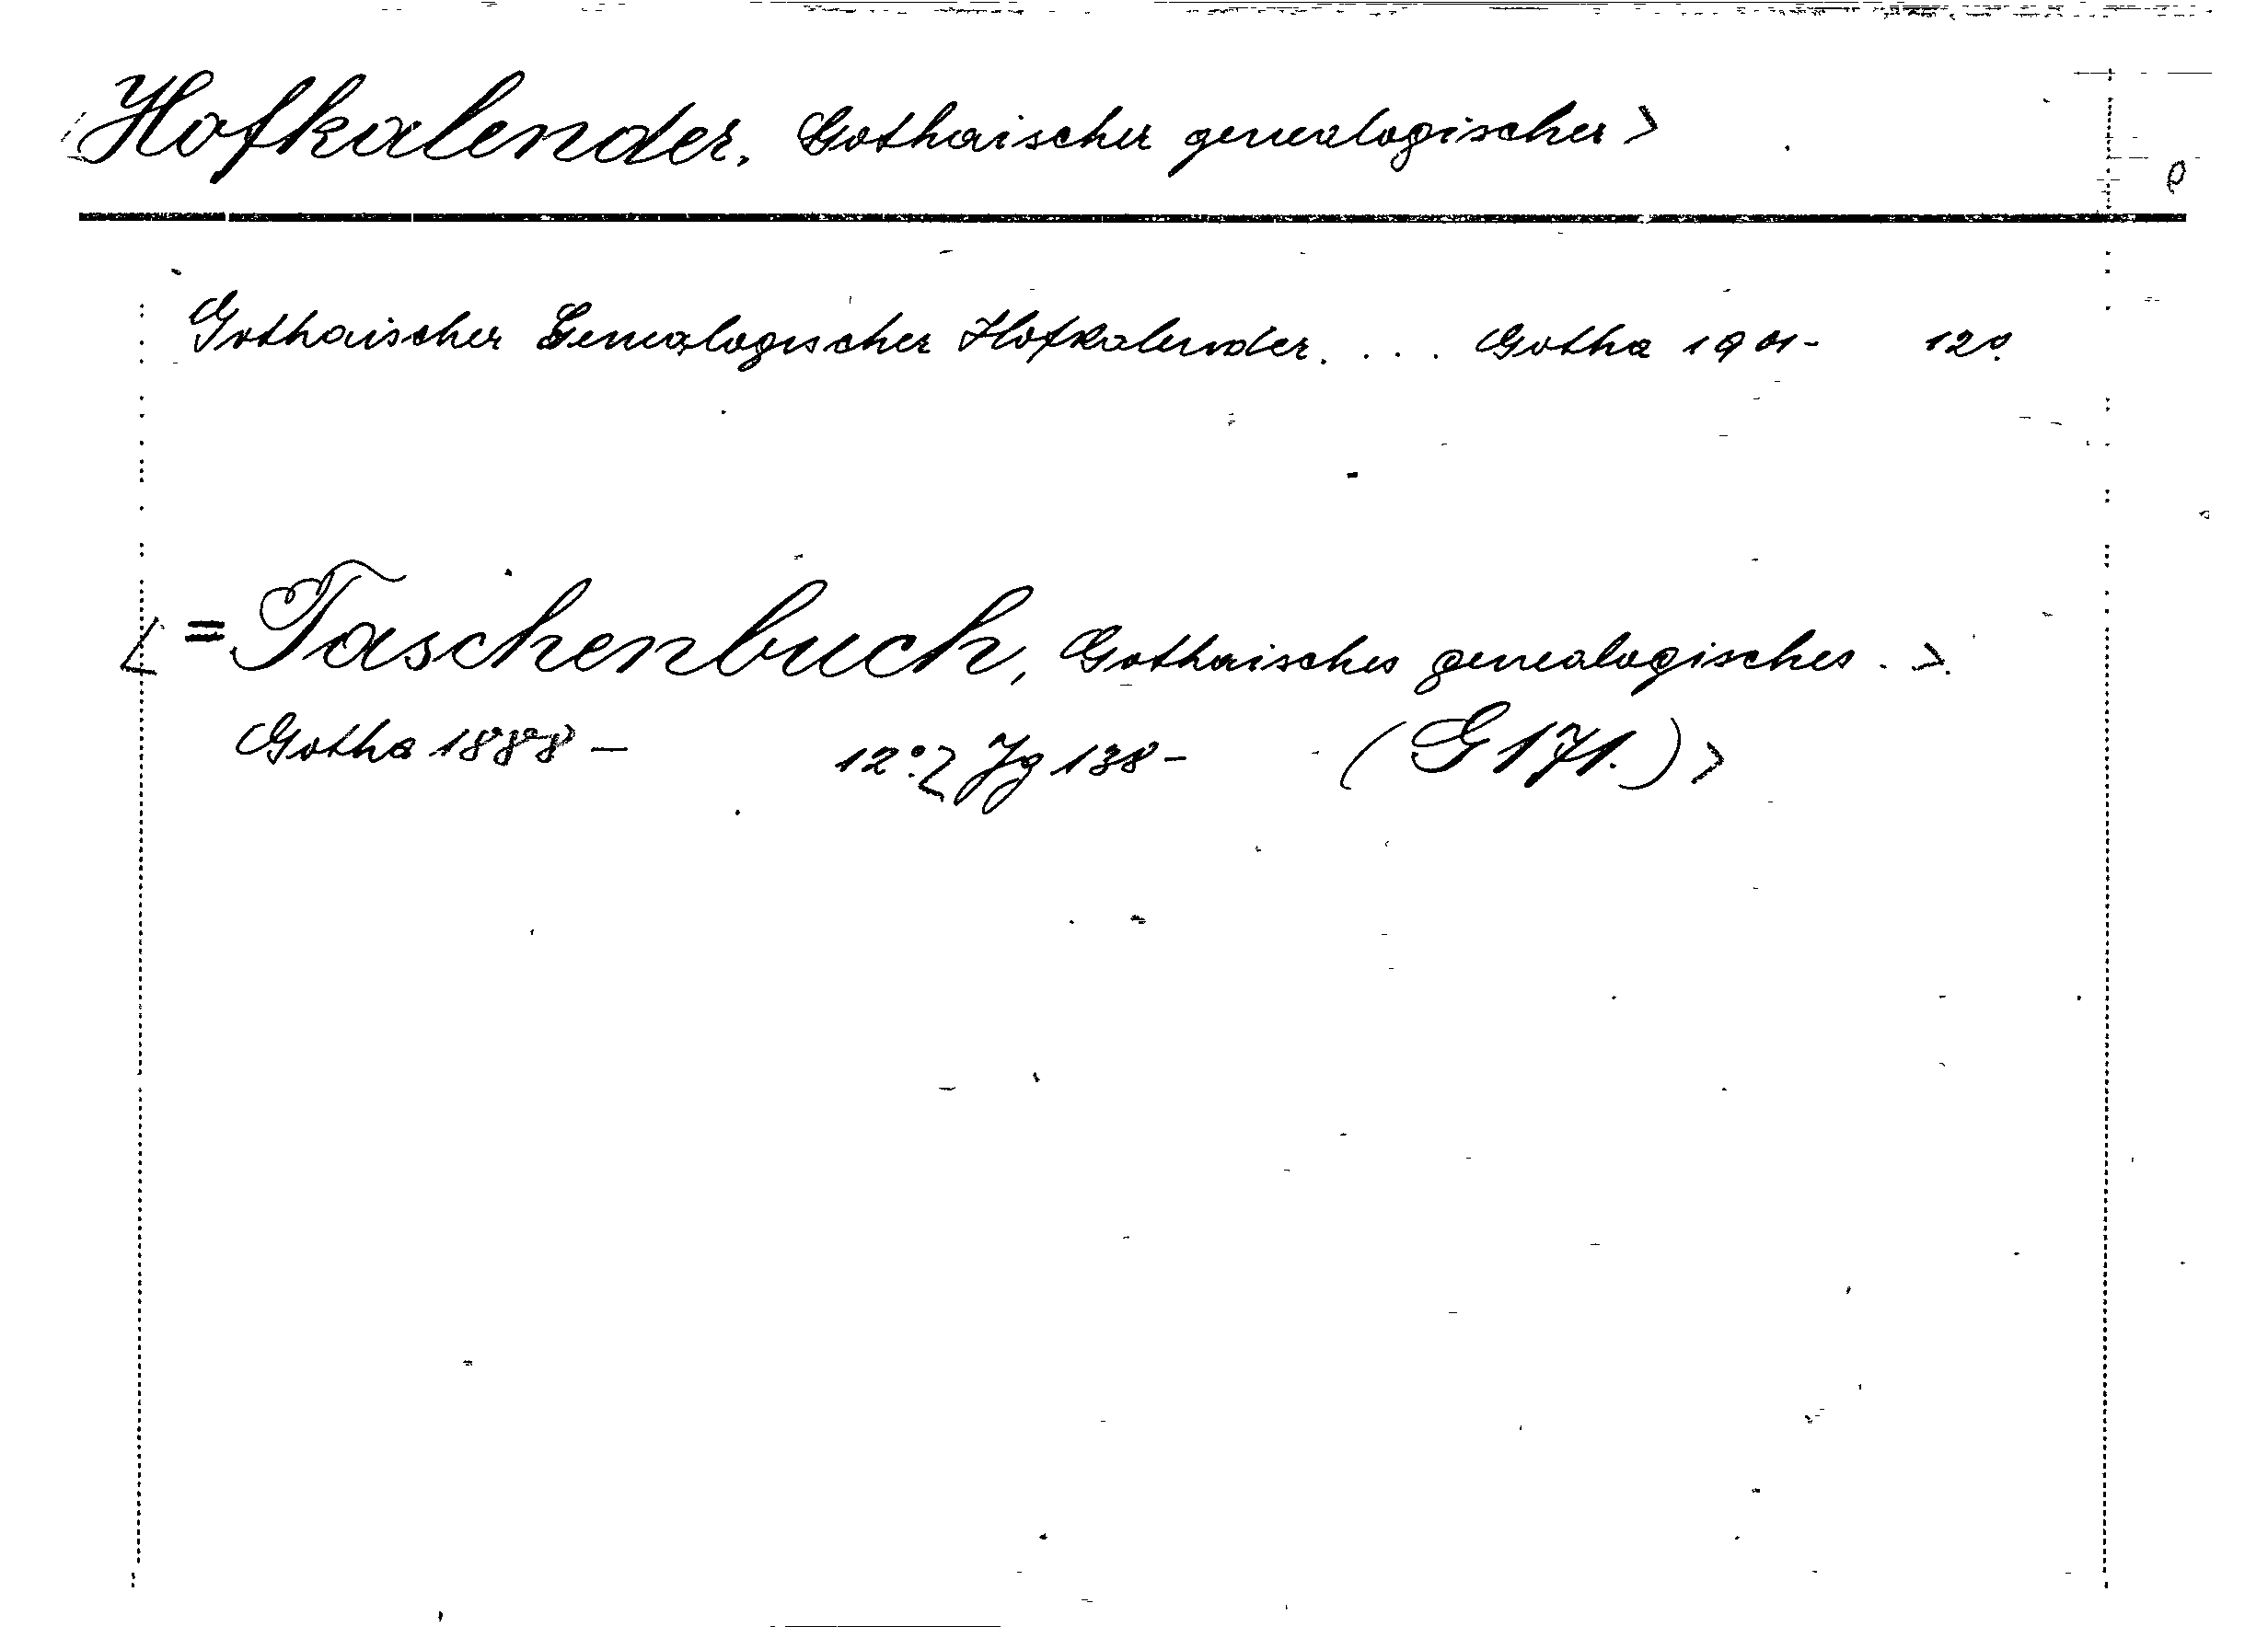 <Hofkalender, Gothaischer genealogischer>
Gothaischer Genealogischer Hofkalender. . . . Gotha 1901- 12°.
<=Taschenbuch, Gothaisches genealogisches.>
Gotha 1888 — 12°. Jg 138- (G 171.)>